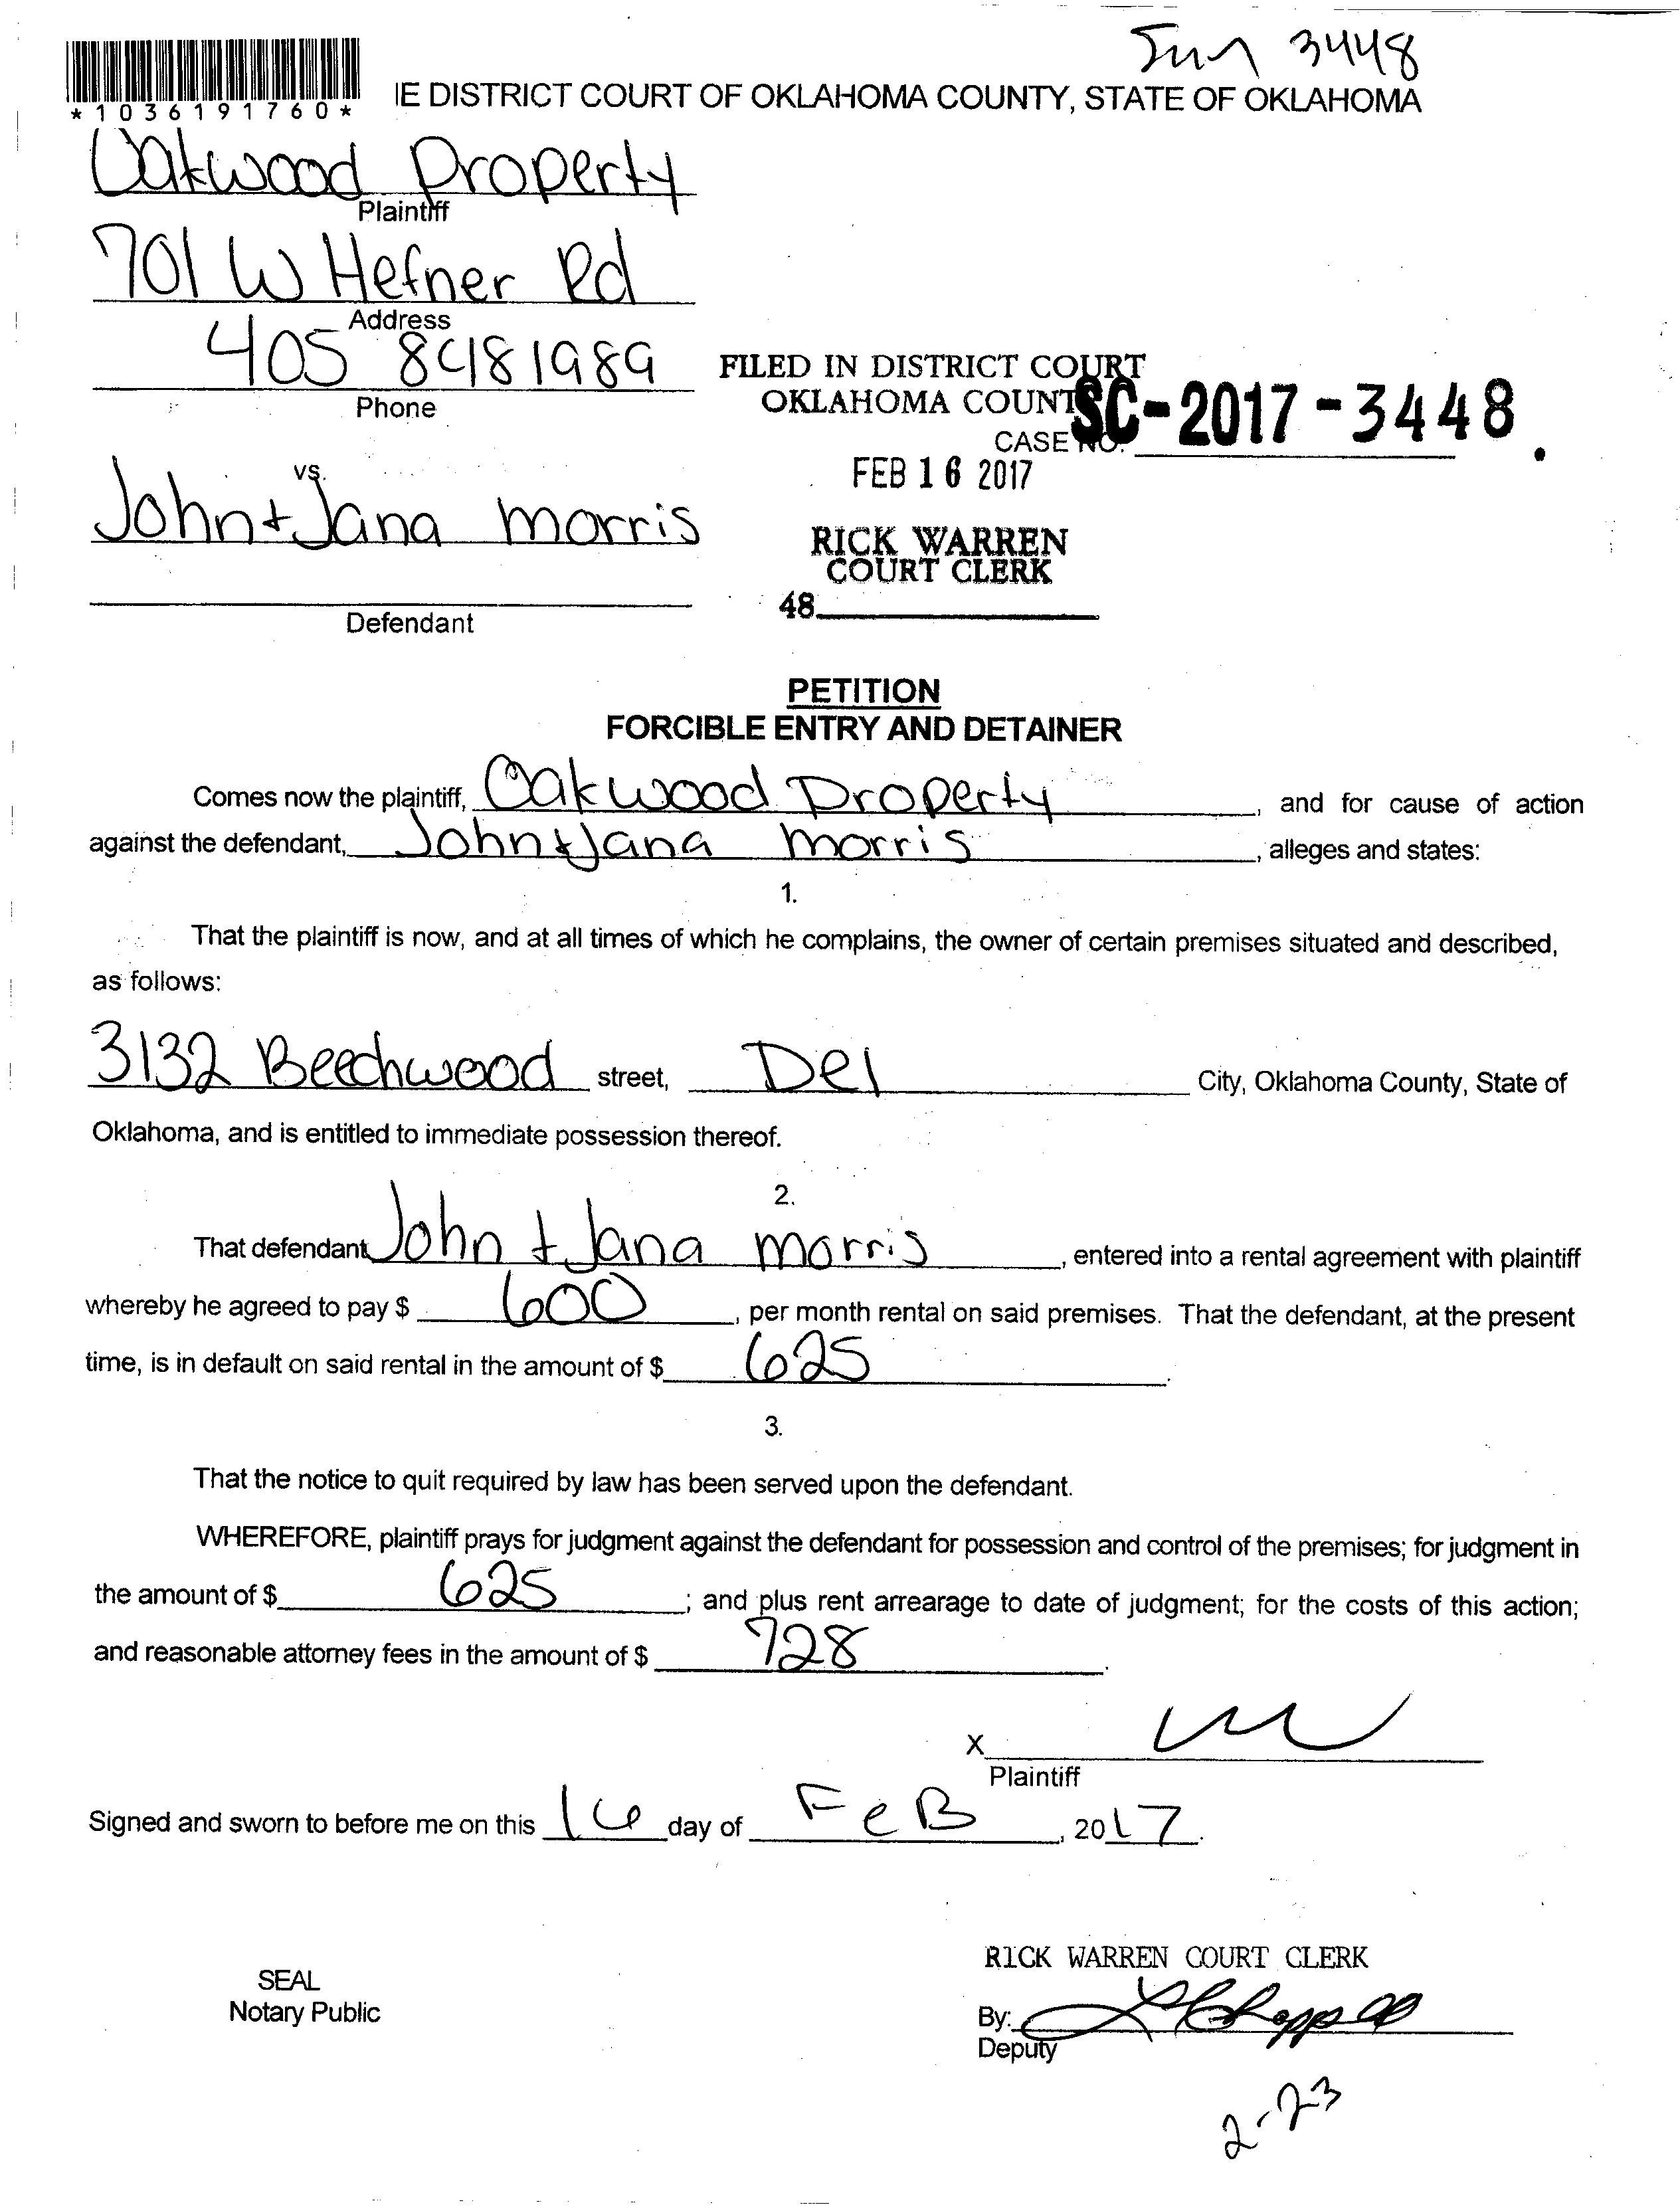 3448
*1036191760*
IE DISTRICT COURT OF OKLAHOMA COUNTY, STATE OF OKLAHOMA
Oakwood Property
Plaintiff
701 W Hefner Rd
Address
405 8481989
Phone
FILED IN DISTRICT COURT
OKLAHOMA COUNT
CASE NO. SC-2017-3448.
FEB 16 2017
RICK WARREN
COURT CLERK
48
vs.
John + Jana morris
Defendant
PETITION
FORCIBLE ENTRY AND DETAINER
Comes now the plaintiff, Oakwood Property, and for cause of action
against the defendant, John + Jana morris, alleges and states:
1.
That the plaintiff is now, and at all times of which he complains, the owner of certain premises situated and described,
as follows:
3132 Beechwood street, Del City, Oklahoma County, State of
Oklahoma, and is entitled to immediate possession thereof.
2.
That defendant John + Jana morris, entered into a rental agreement with plaintiff
whereby he agreed to pay $ 600, per month rental on said premises. That the defendant, at the present
time, is in default on said rental in the amount of $ 625.
3.
That the notice to quit required by law has been served upon the defendant.
WHEREFORE, plaintiff prays for judgment against the defendant for possession and control of the premises; for judgment in
the amount of $ 625; and plus rent arrearage to date of judgment; for the costs of this action;
and reasonable attorney fees in the amount of $ 728.
X
Plaintiff
Signed and sworn to before me on this 16 day of FeB, 2017.
SEAL
Notary Public
RICK WARREN COURT CLERK
By:
Deputy
2-23